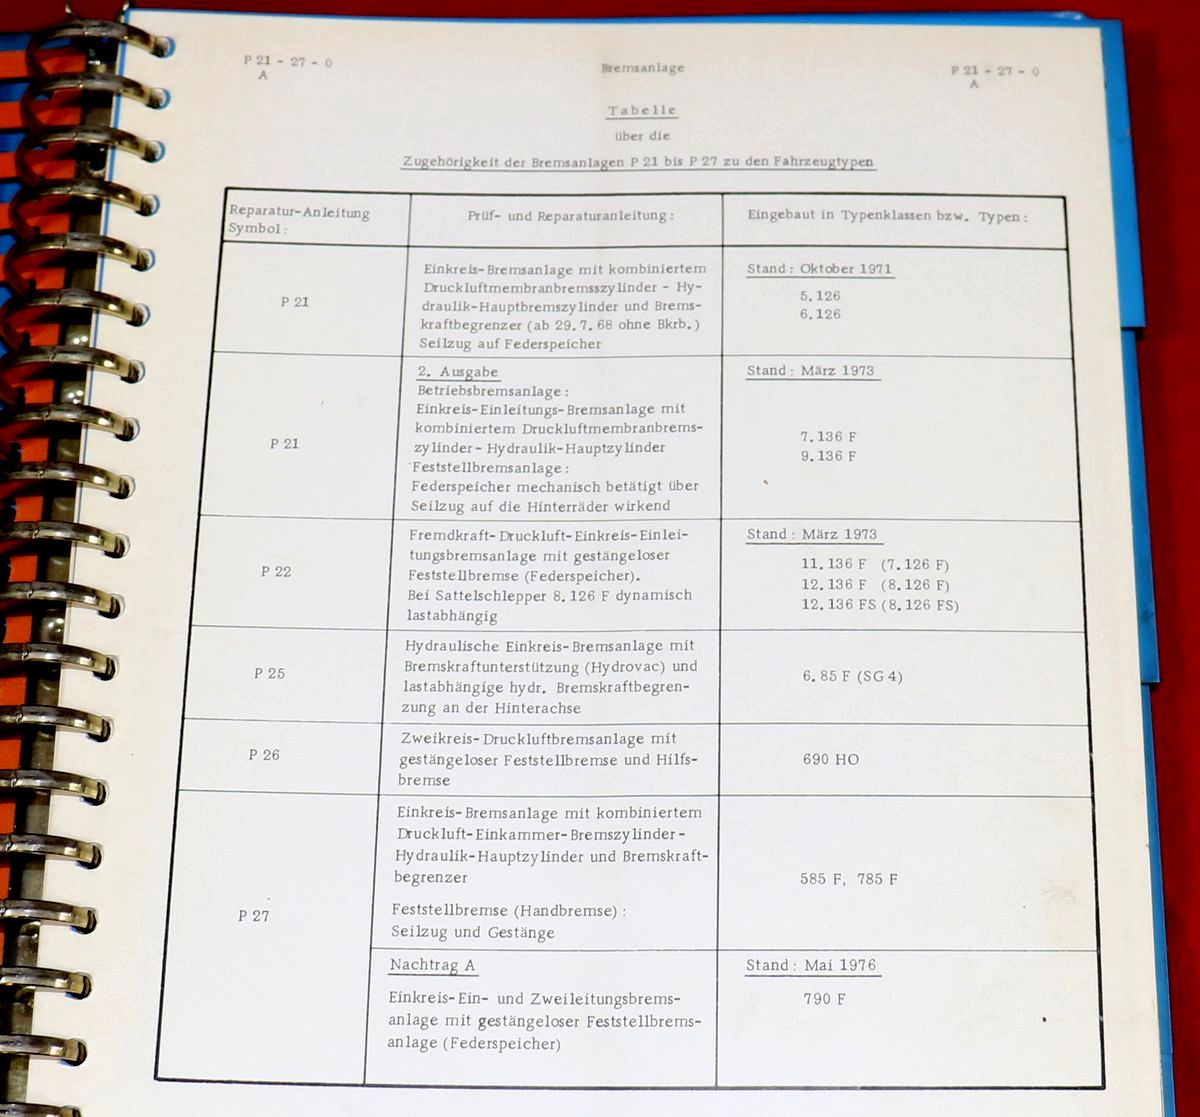 P 21 - 27 - 0
A
Bremsanlage
P 21 - 27 - 0
A
Tabelle
über die
Zugehörigkeit der Bremsanlagen P 21 bis P 27 zu den Fahrzeugtypen
Reparatur-Anleitung
Symbol:
Prüf- und Reparaturanleitung:
Eingebaut in Typenklassen bzw. Typen:
P 21
Einkreis-Bremsanlage mit kombiniertem
Druckluftmembranbremsszylinder - Hy-
draulik-Hauptbremszylinder und Brems-
kraftbegrenzer (ab 29. 7. 68 ohne Bkrb.)
Seilzug auf Federspeicher
Stand: Oktober 1971
5.126
6.126
P 21
2. Ausgabe
Betriebsbremsanlage:
Einkreis-Einleitungs-Bremsanlage mit
kombiniertem Druckluftmembranbrems-
zylinder- Hydraulik-Hauptzylinder
Feststellbremsanlage:
Federspeicher mechanisch betätigt über
Seilzug auf die Hinterräder wirkend
Stand: März 1973
7.136 F
9.136 F
P 22
Fremdkraft-Druckluft-Einkreis-Einlei-
tungsbremsanlage mit gestängeloser
Feststellbremse (Federspeicher).
Bei Sattelschlepper 8.126 F dynamisch
lastabhängig
Stand: März 1973
11.136 F (7.126 F)
12.136 F (8.126 F)
12.136 FS (8.126 FS)
P 25
Hydraulische Einkreis-Bremsanlage mit
Bremskraftunterstützung (Hydrovac) und
lastabhängige hydr. Bremskraftbegren-
zung an der Hinterachse
6.85 F (SG 4)
P 26
Zweikreis-Druckluftbremsanlage mit
gestängeloser Feststellbremse und Hilfs-
bremse
690 HO
P 27
Einkreis-Bremsanlage mit kombiniertem
Druckluft-Einkammer-Bremszylinder-
Hydraulik-Hauptzylinder und Bremskraft-
begrenzer
Feststellbremse (Handbremse):
Seilzug und Gestänge
585 F, 785 F
Nachtrag A
Einkreis-Ein- und Zweileitungsbrems-
anlage mit gestängeloser Feststellbrems-
anlage (Federspeicher)
Stand: Mai 1976
790 F